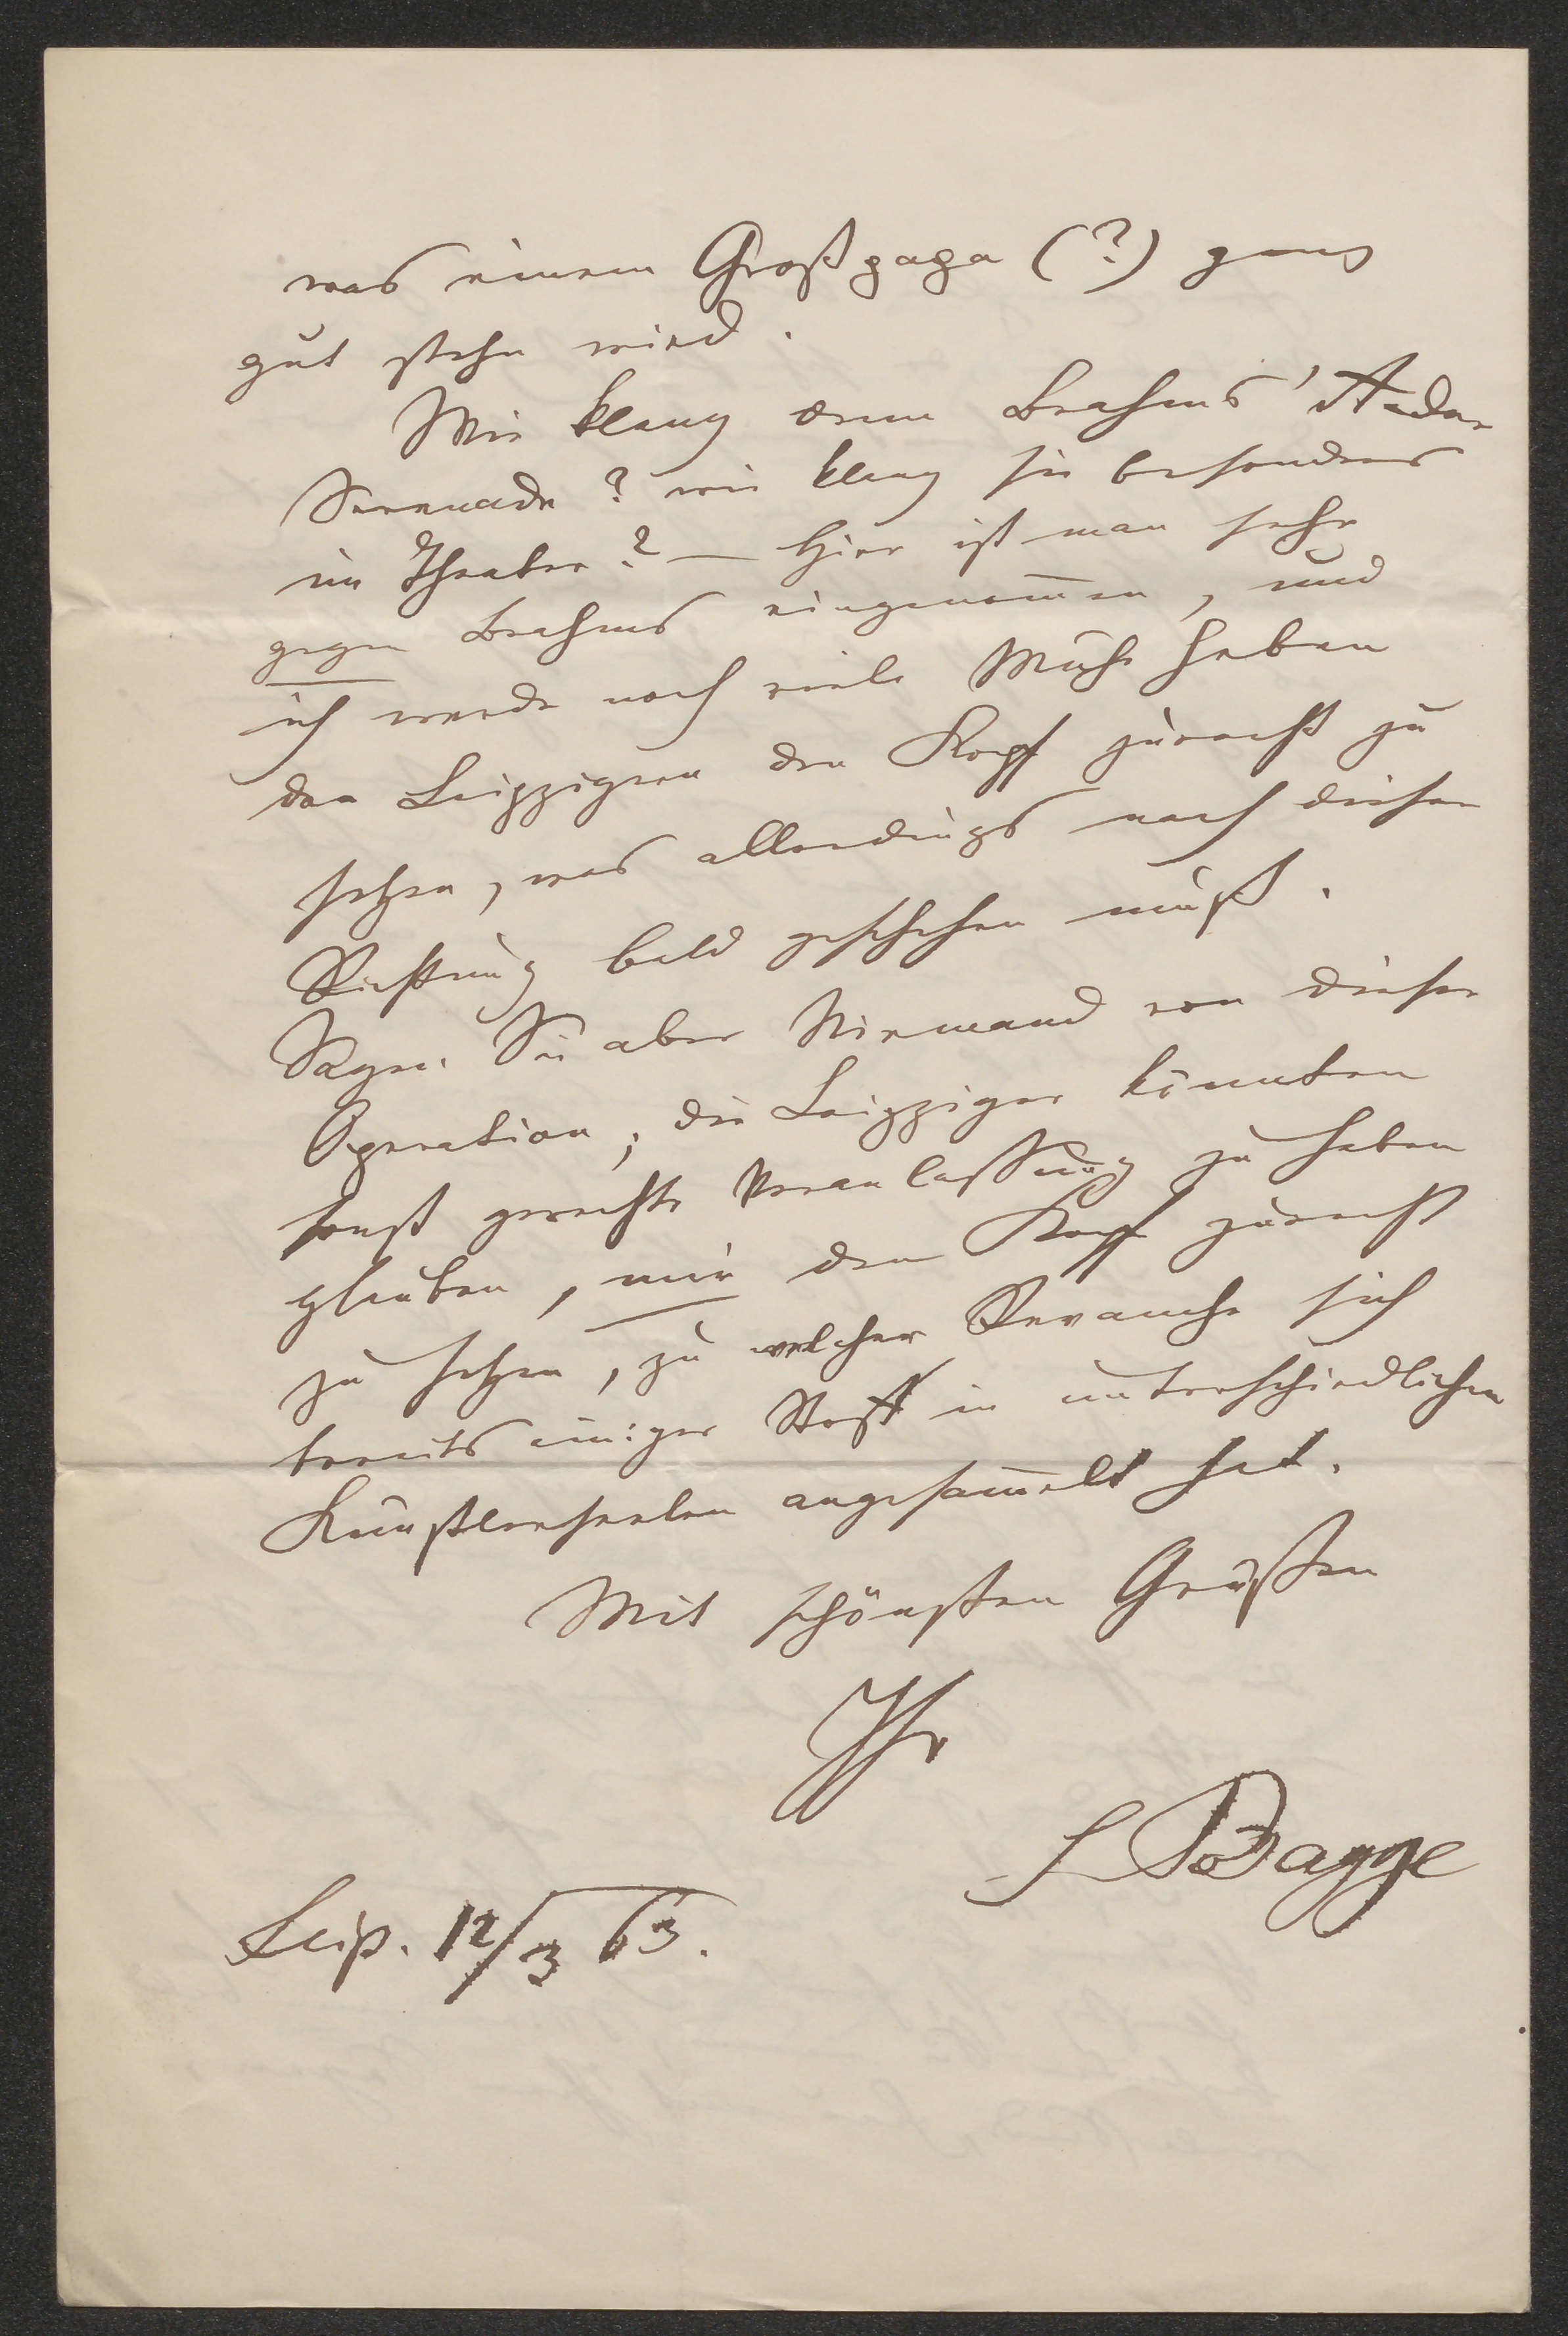 was einem Großpapa (?) ganz
gut stehn wird.
Wie klang denn Brahms' A-dur
Serenade? wie klang sie besonders
im Theater? — Hier ist man sehr
gegen Brahms eingenom̄en, und
ich werde noch viele Mühe haben
den Leipzigern den Kopf zurecht zu
setzen, was allerdings nach dieser
Richtung bald geschehen muß.
Sagen Sie aber Niemand von dieser
Operation, die Leipziger könnten
sonst gerechte Veranlassung zu haben
glauben, mir den Kopf zurecht
zu setzen, zu welcher Revanche sich
bereits einiger Stoff in unterschiedlichen
Künstlerseelen angesam̄elt hat.
Mit schönsten Grüßen
Ihr
S Bagge
Leip. 12/3 63.